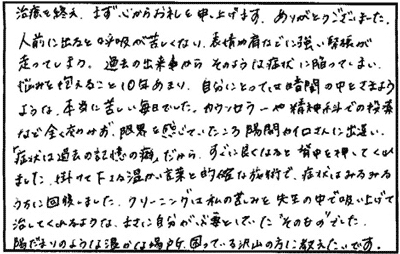 治療を終え、まず心からお礼を申し上げます。ありがとうございました。
人前に出ると呼吸が苦しくなり、表情や肩などに強い緊張が
走ってしまう。過去の出来事からそのような症状に陥ってしまい、
悩みを抱えること10年あまり、自分にとっては暗闇の中をさまよう
ような、本当に苦しい毎日でした。カウンセラーや精神科での投薬
など全て効かず、限界を感じていたころ陽開カイロさんに出逢い、
「症状は過去の記憶の癖」だから、すぐに良くなると背中を押してくれ
ました。掛けて下さる温かい言葉と的確な施術で、症状はみるみる
うちに回復しました。クリーニングは私の苦しみを先生の中で吸い上げて
治してくれるような、まさに自分が必要としていた"そのもの"でした。
陽だまりのような温かな場所、困っている沢山の方に教えたいです。